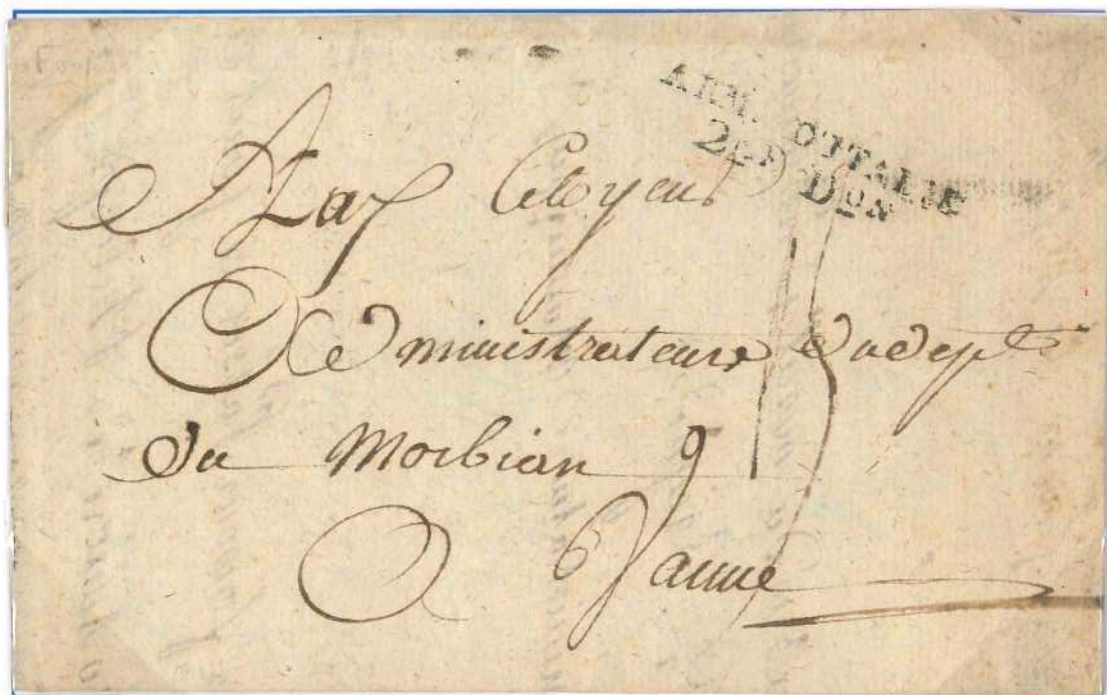 ARM. D'ITALIE
2e Don
Aux Citoyens
Administrateurs du dept
du Morbian
A Vanne